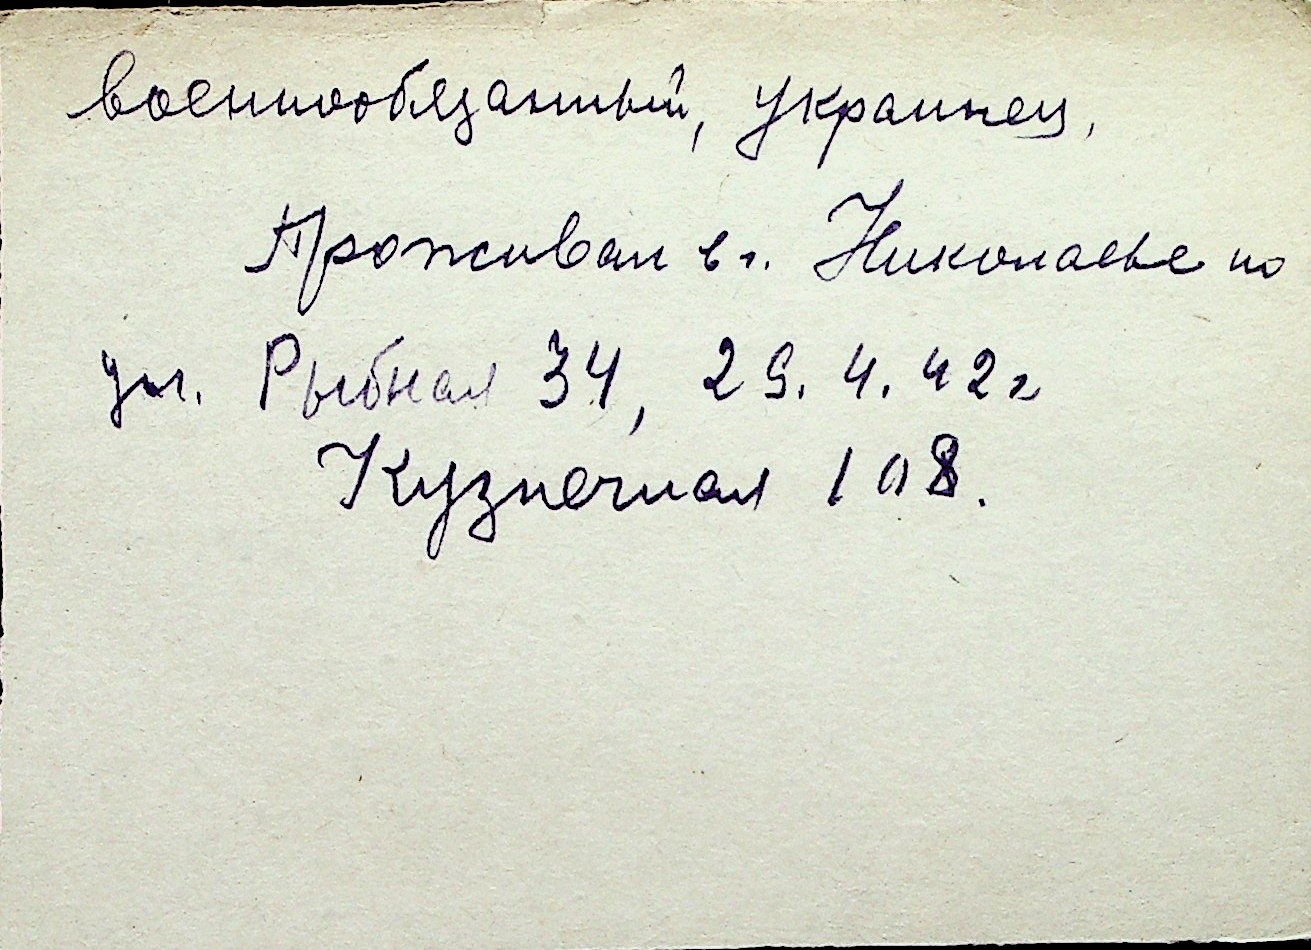 военнообязанный, украинец,
Проживал в г. Николаеве по
ул. Рыбная 34, 29.4.42 г
Кузнечная 108.